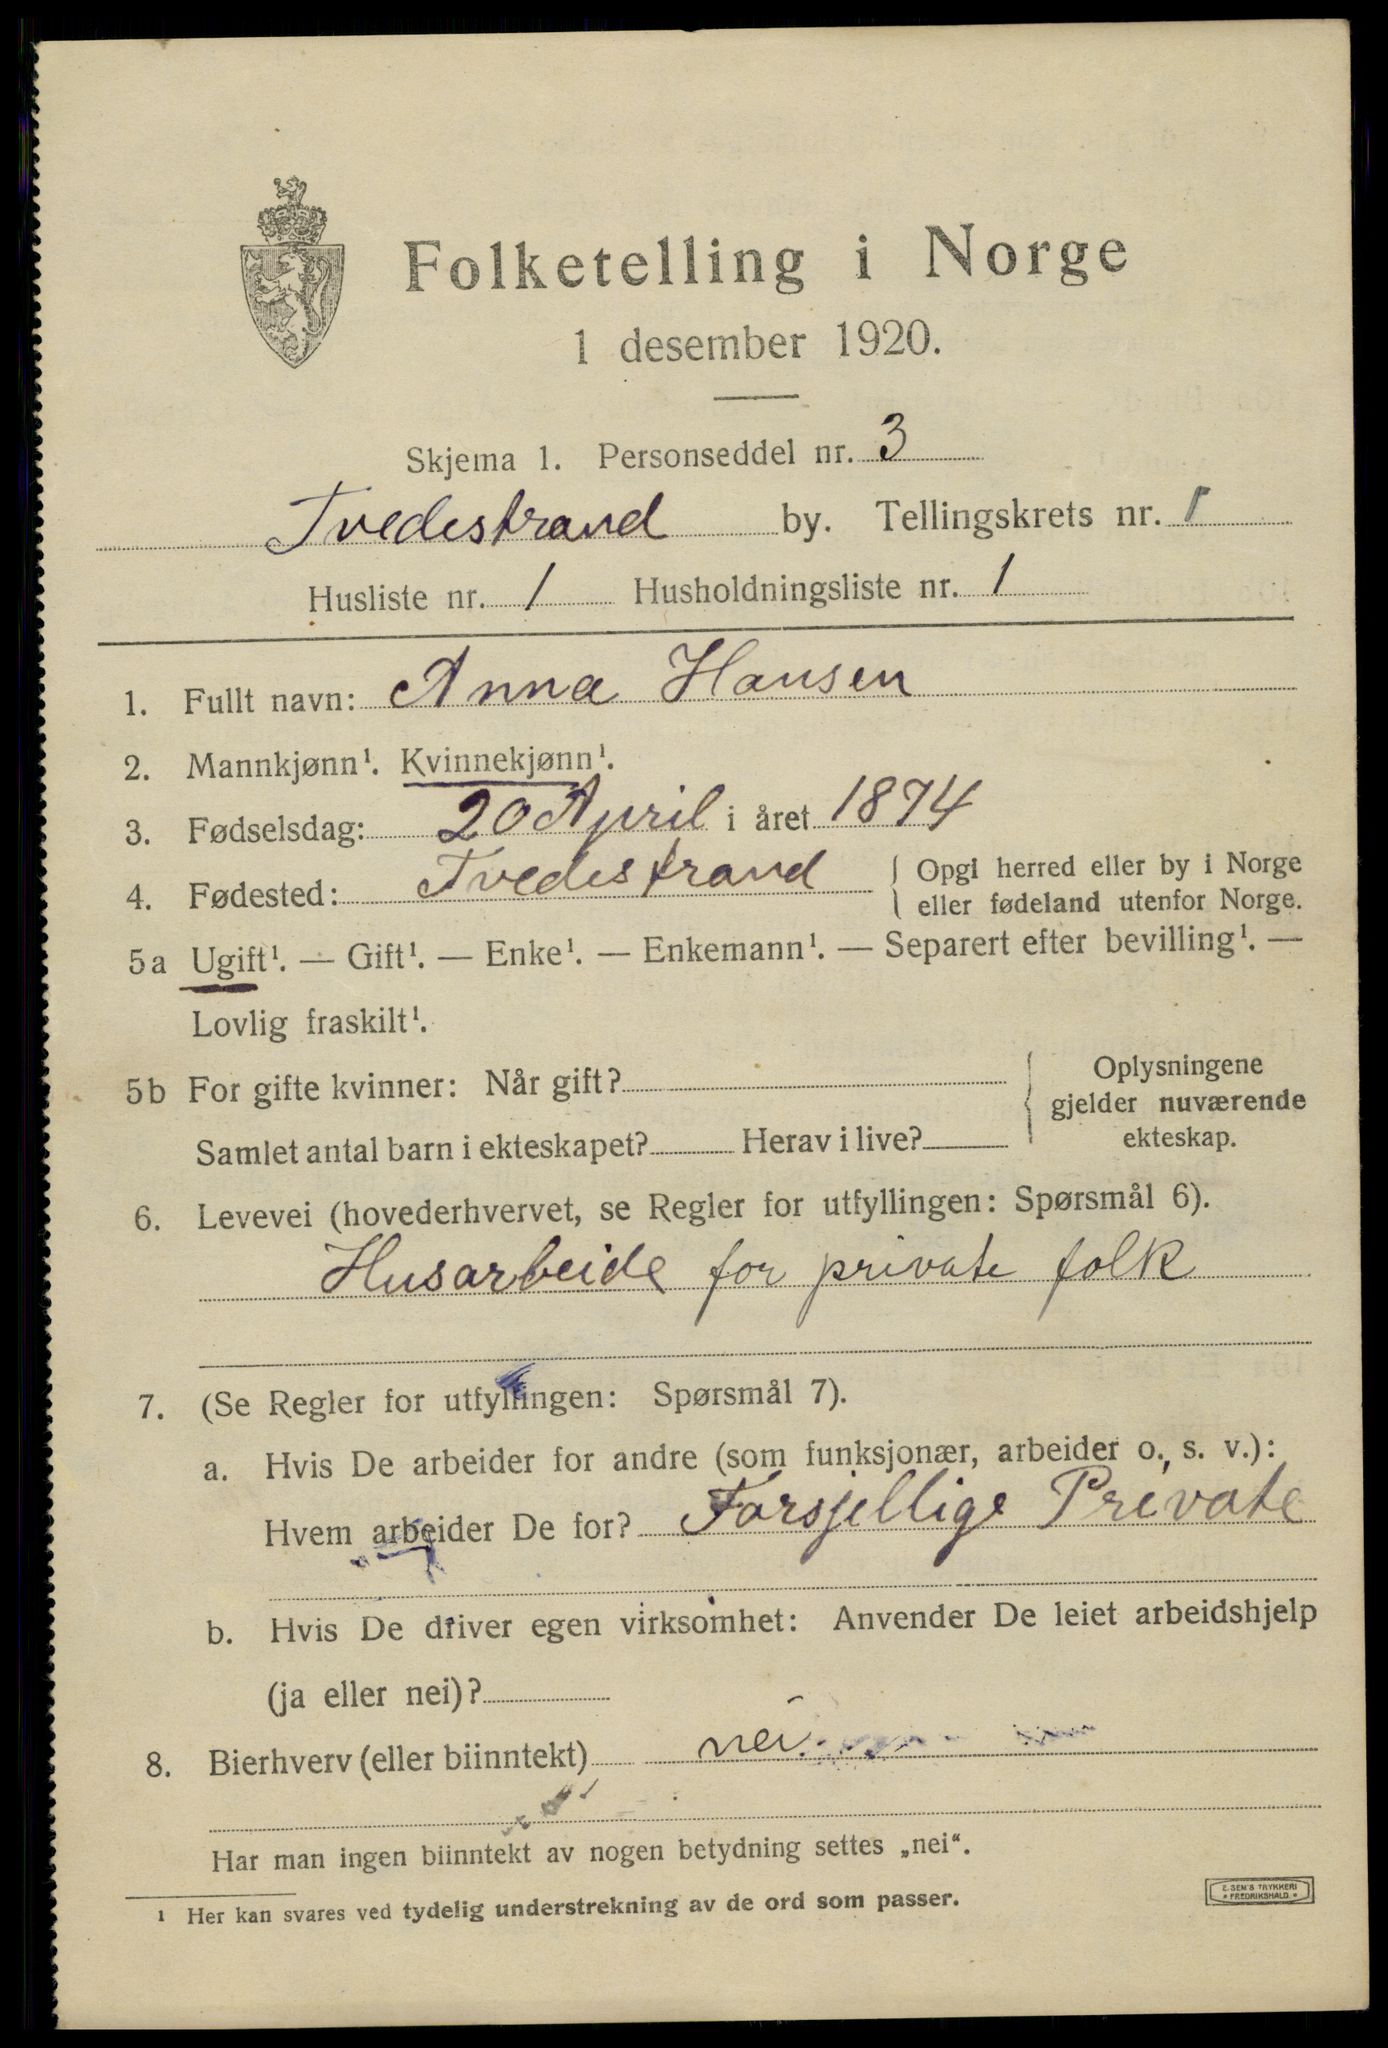 Folketelling i Norge
1 desember 1920.
Skjema 1. Personseddel nr. 3
Tvedestrand by. Tellingskrets nr. 1
Husliste nr. 1 Husholdningsliste nr. 1
1. Fullt navn: Anna Hansen
2. Mannkjønn¹. Kvinnekjønn¹.
3. Fødselsdag: 20 April i året 1874
4. Fødested: Tvedestrand { Opgi herred eller by i Norge
eller fødeland utenfor Norge.
5a Ugift¹. — Gift¹. — Enke¹. — Enkemann¹. — Separert efter bevilling¹. —
Lovlig fraskilt¹.
5b For gifte kvinner: Når gift? { Oplysningene
gjelder nuværende
Samlet antal barn i ekteskapet? Herav i live? ekteskap.
6. Levevei (hovederhvervet, se Regler for utfyllingen: Spørsmål 6).
Husarbeide for private folk
7. (Se Regler for utfyllingen: Spørsmål 7).
a. Hvis De arbeider for andre (som funksjonær, arbeider o. s. v.):
Hvem arbeider De for? Forsjellige Private
b. Hvis De driver egen virksomhet: Anvender De leiet arbeidshjelp
(ja eller nei)?
8. Bierhverv (eller biinntekt) nei.
Har man ingen biinntekt av nogen betydning settes „nei“.
¹ Her kan svares ved tydelig understrekning av de ord som passer.
E. SEM'S TRYKKERI
FREDRIKSHALD.